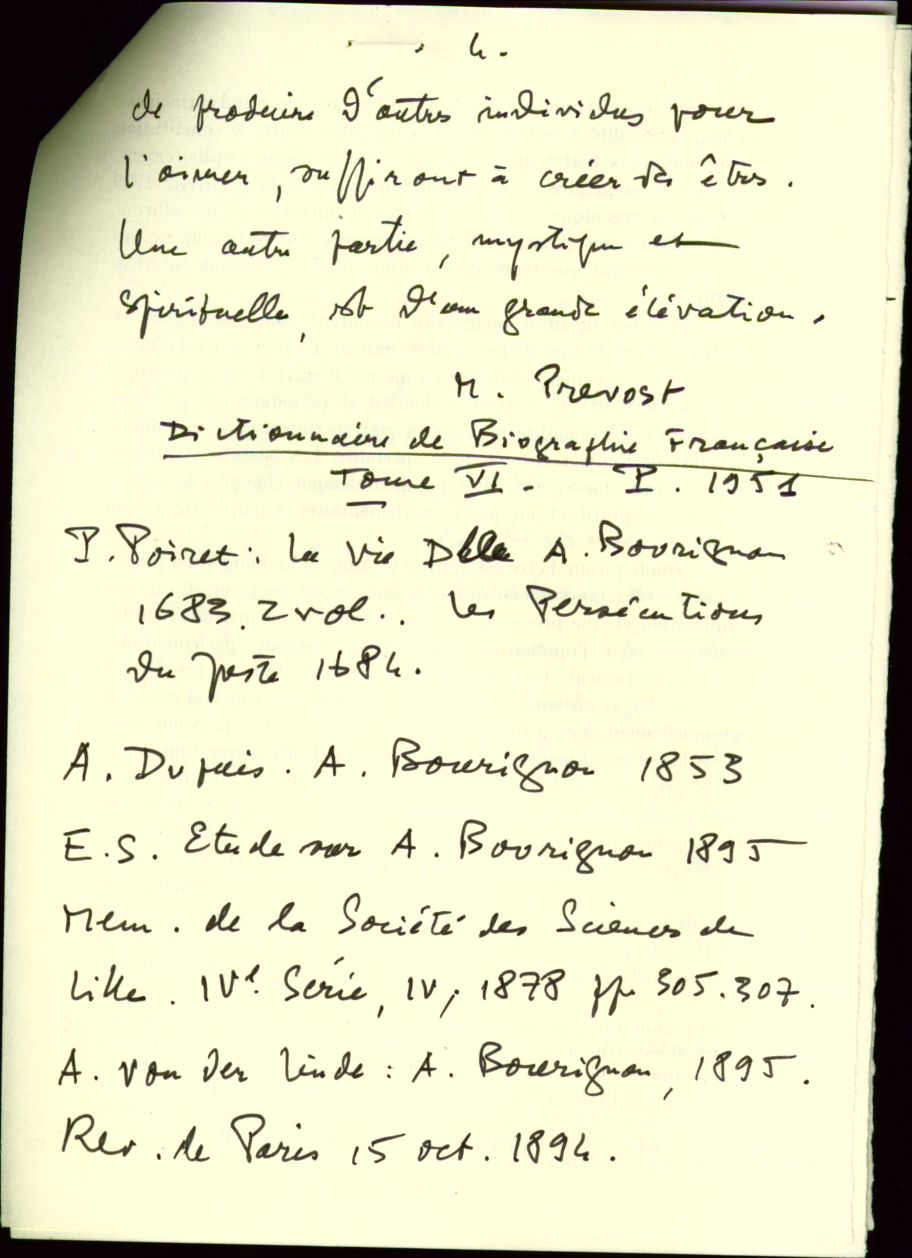 4.
de produire d'autres individus pour
l'aimer, suffiront à créer des êtres.
Une autre partie, mystique et
spirituelle, est d'une grande élévation.
M. Prevost
Dictionnaire de Biographie Française
Tome VI. P. 1951
P. Poiret. La Vie De A. Bourignon
1683. 2 vol.. Les Persécutions
du Juste 1684.
A. Dupuis. A. Bourignon 1853
E.S. Etude sur A. Bourignon 1895
Mem. de la Société des Sciences de
Lille. IVe. Série, IV, 1878 pp 305.307.
A. von der Linde : A. Bourignon, 1895.
Rev. de Paris 15 oct. 1894.